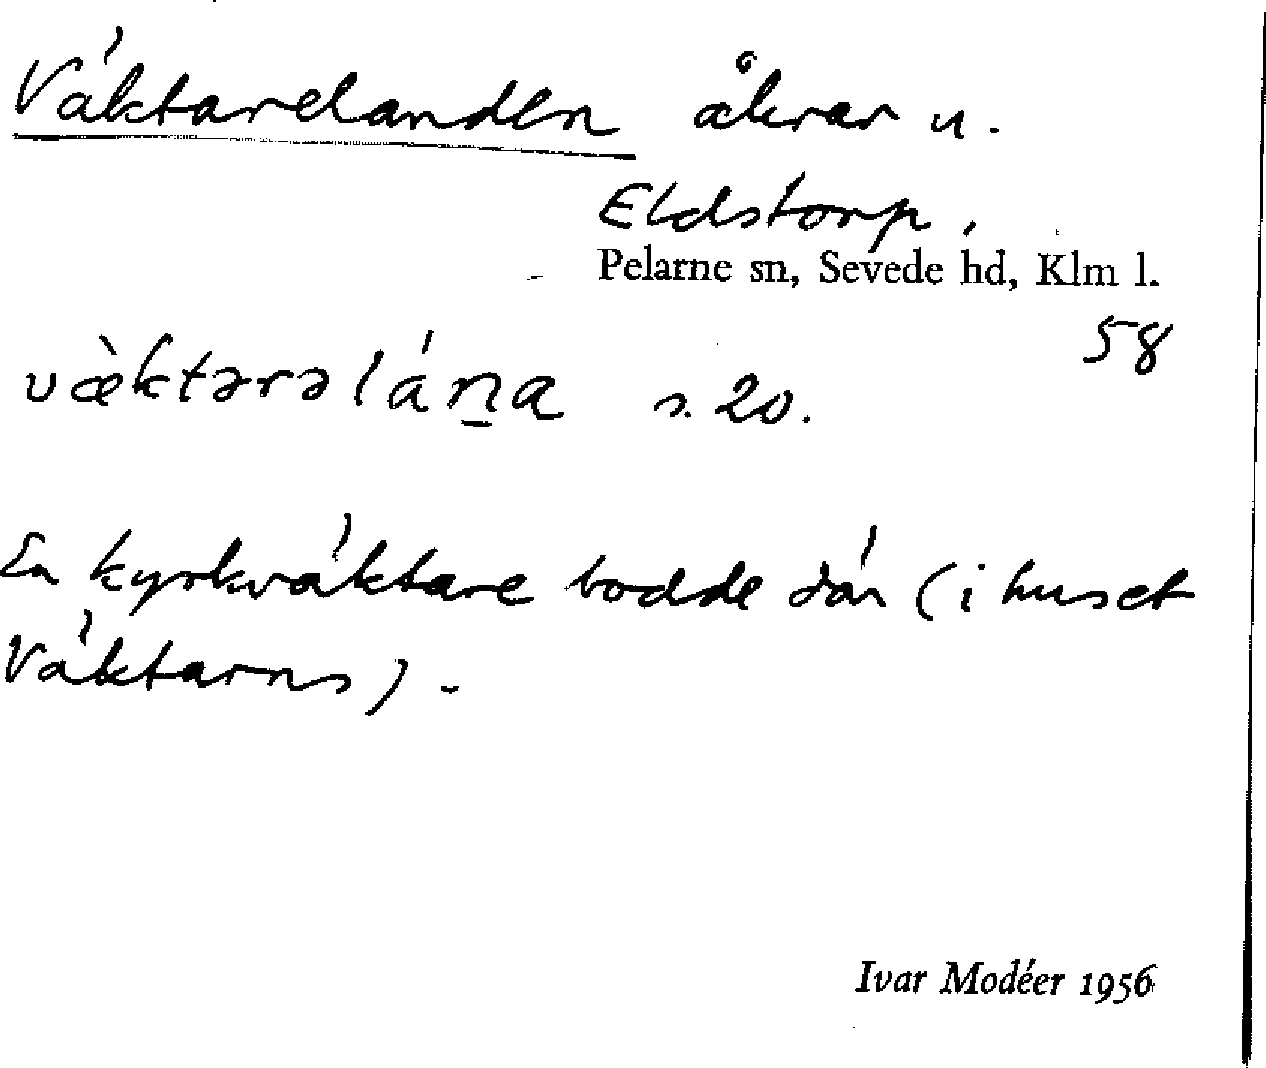 Väktarelanden åkrar u.
Eldstorp,
Pelarne sn, Sevede hd, Klm l.
58
væ̀ktərəláṉa s. 20.
En kyrkväktare bodde där (i huset
Väktarns).
Ivar Modéer 1956